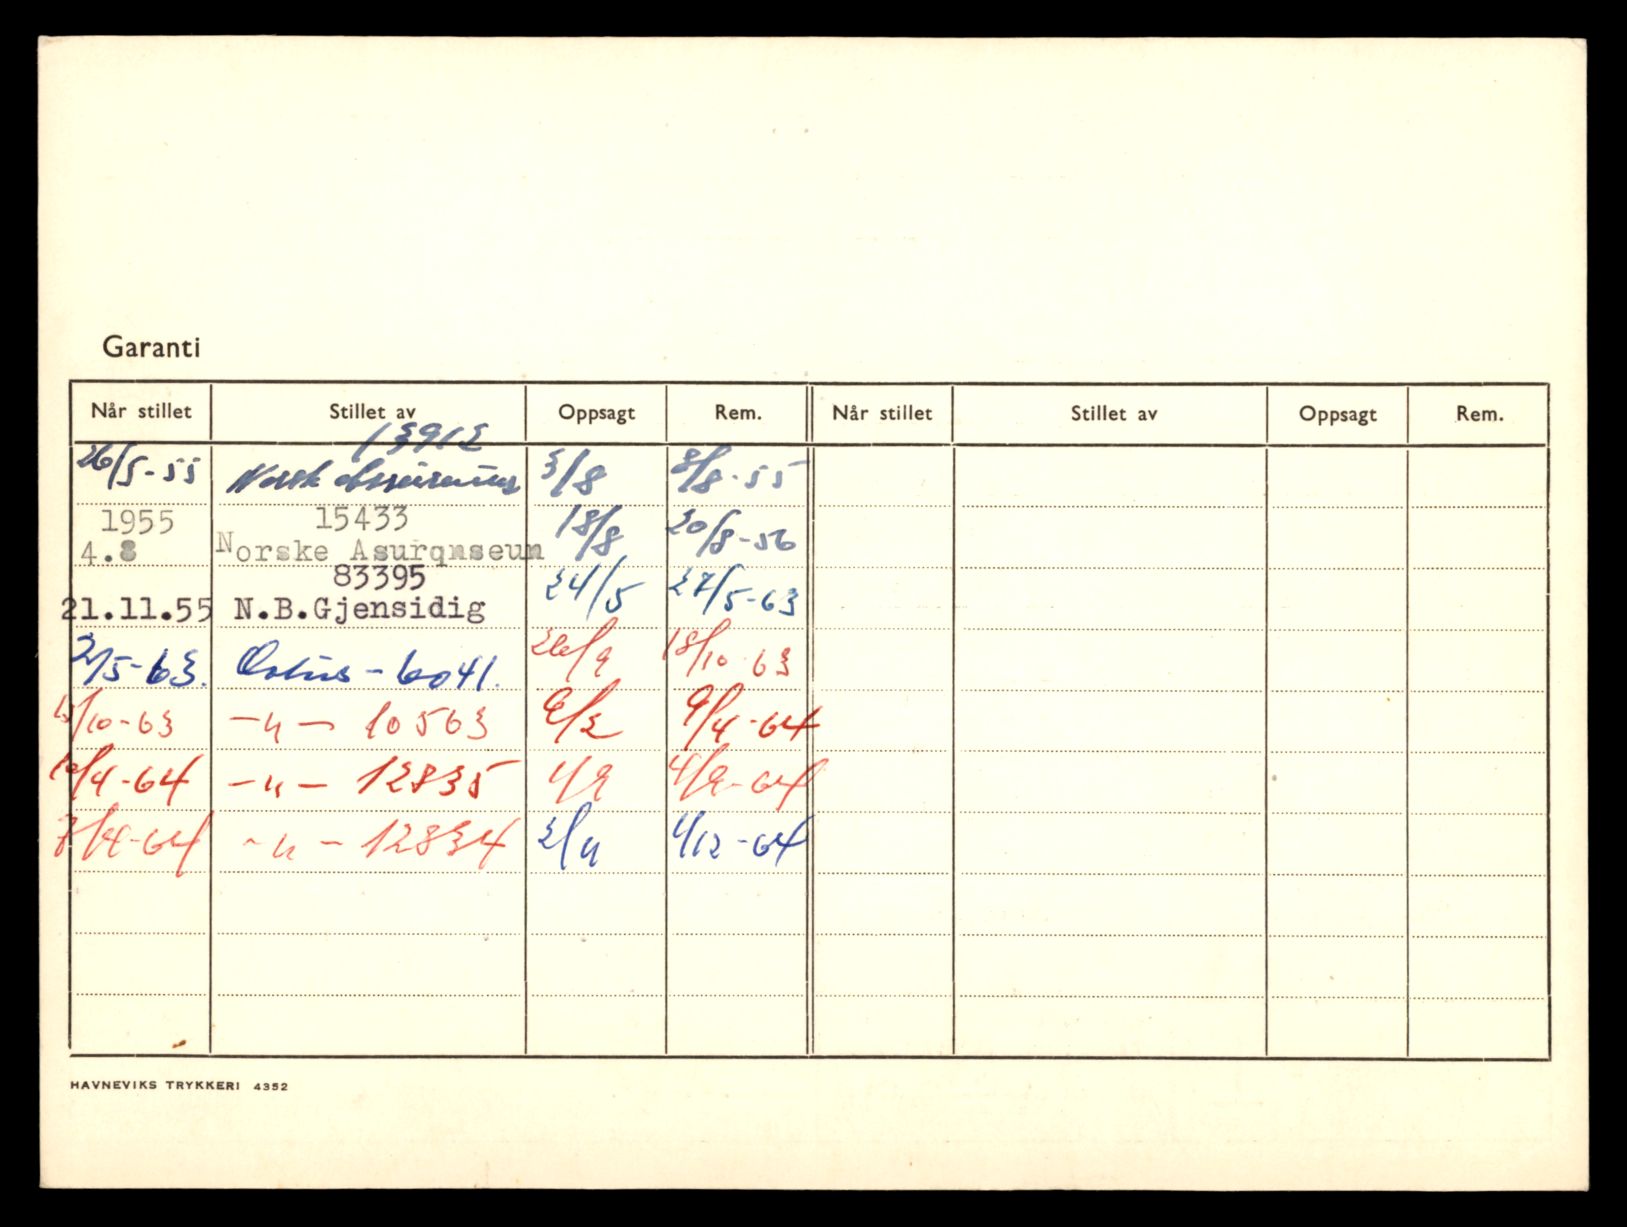 Garanti
Når stillet Stillet av Oppsagt Rem. Når stillet Stillet av Oppsagt Rem.
13912
26/5-55 Norsk 3/8 8/8-55
1955 15433 18/8 20/8-56
4.8 Norske Asurqnseum
83395 24/5 27/5-63
21.11.55 N.B.Gjensidig
2/5-63. - 6041. 26/9 18/10-63
/10-63 -"- 10563 2/2 9/4-64
/4-64 -"- 12835 4/9 4/9-64
7/4-64 -"- 12834 2/4 4/12-64
HAVNEVIKS TRYKKERI 4352